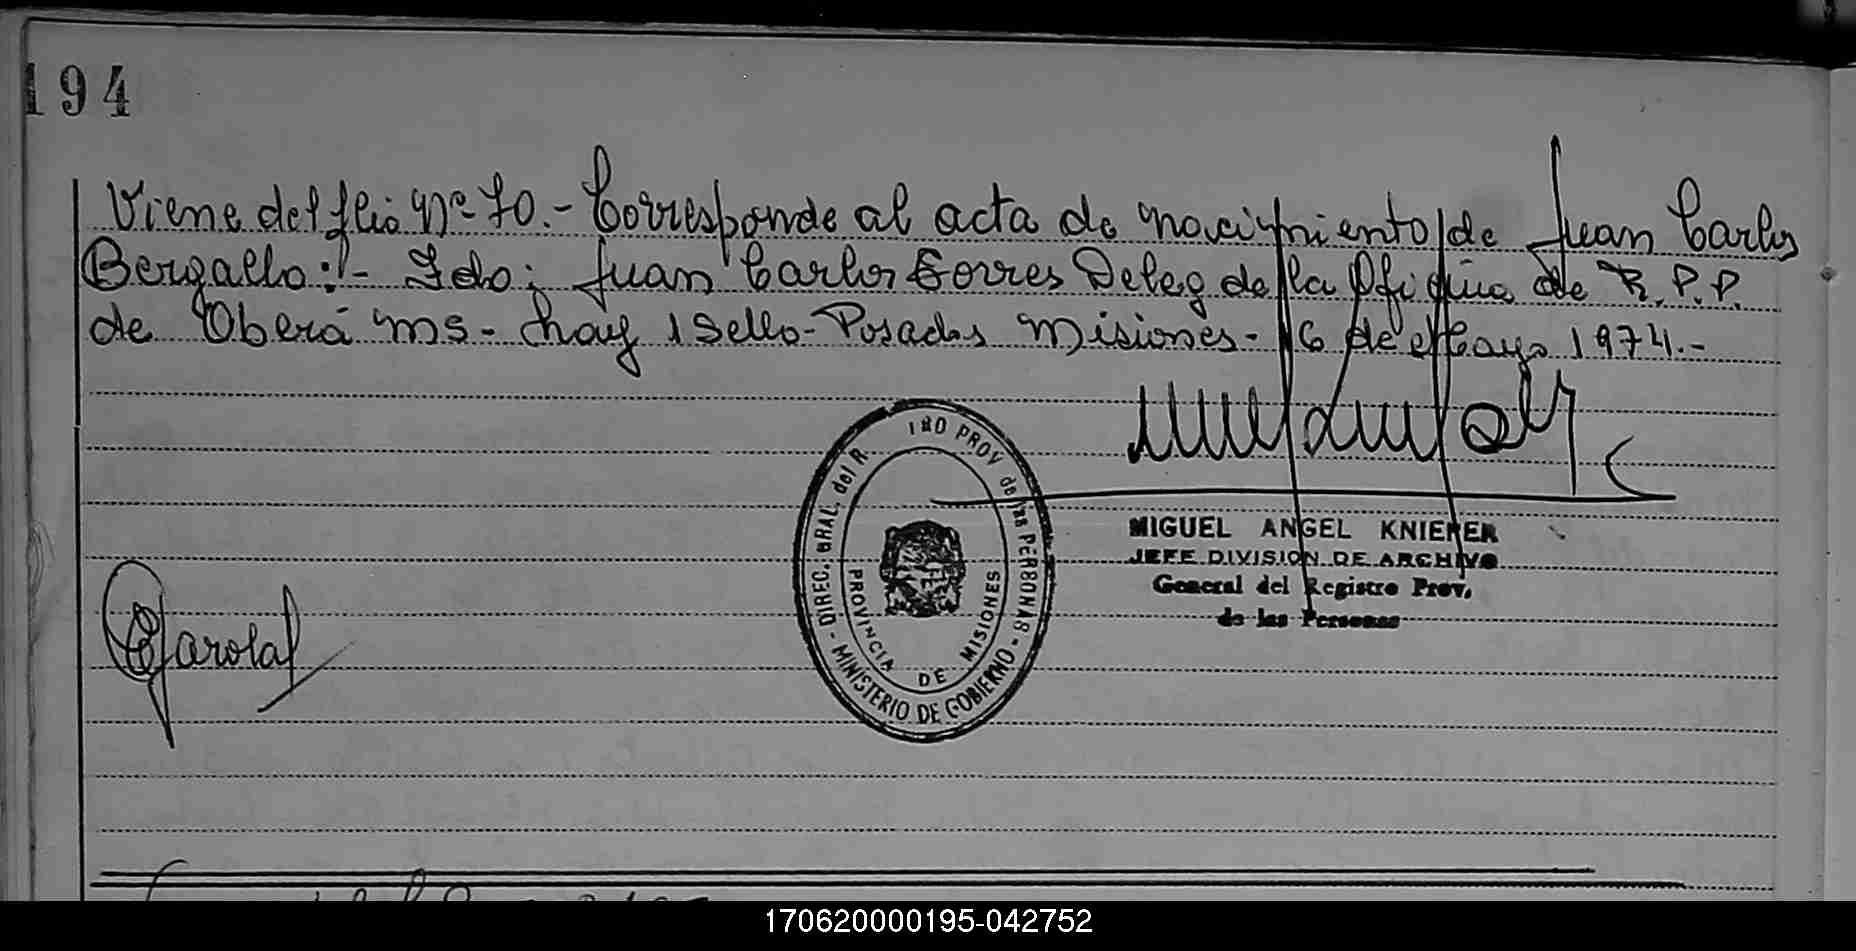 194
Viene del flio Nº 70.- Corresponde al acta de nacimiento de Juan Carlos
Bergallo:!- Fdo: Juan Carlos Torres Deleg de la Oficina de R.P.P.
de Oberá Ms- hay 1 Sello- Posadas Misiones- 16 de Mayo 1974.-
DIREC. GRAL. del R PROV de las PERSONAS - MINISTERIO DE GOBIERNO -
PROVINCIA DE MISIONES
MIGUEL ANGEL KNIERER
JEFE DIVISION DE ARCHIVO
General del Registro Prov.
de las Personas
170620000195-042752